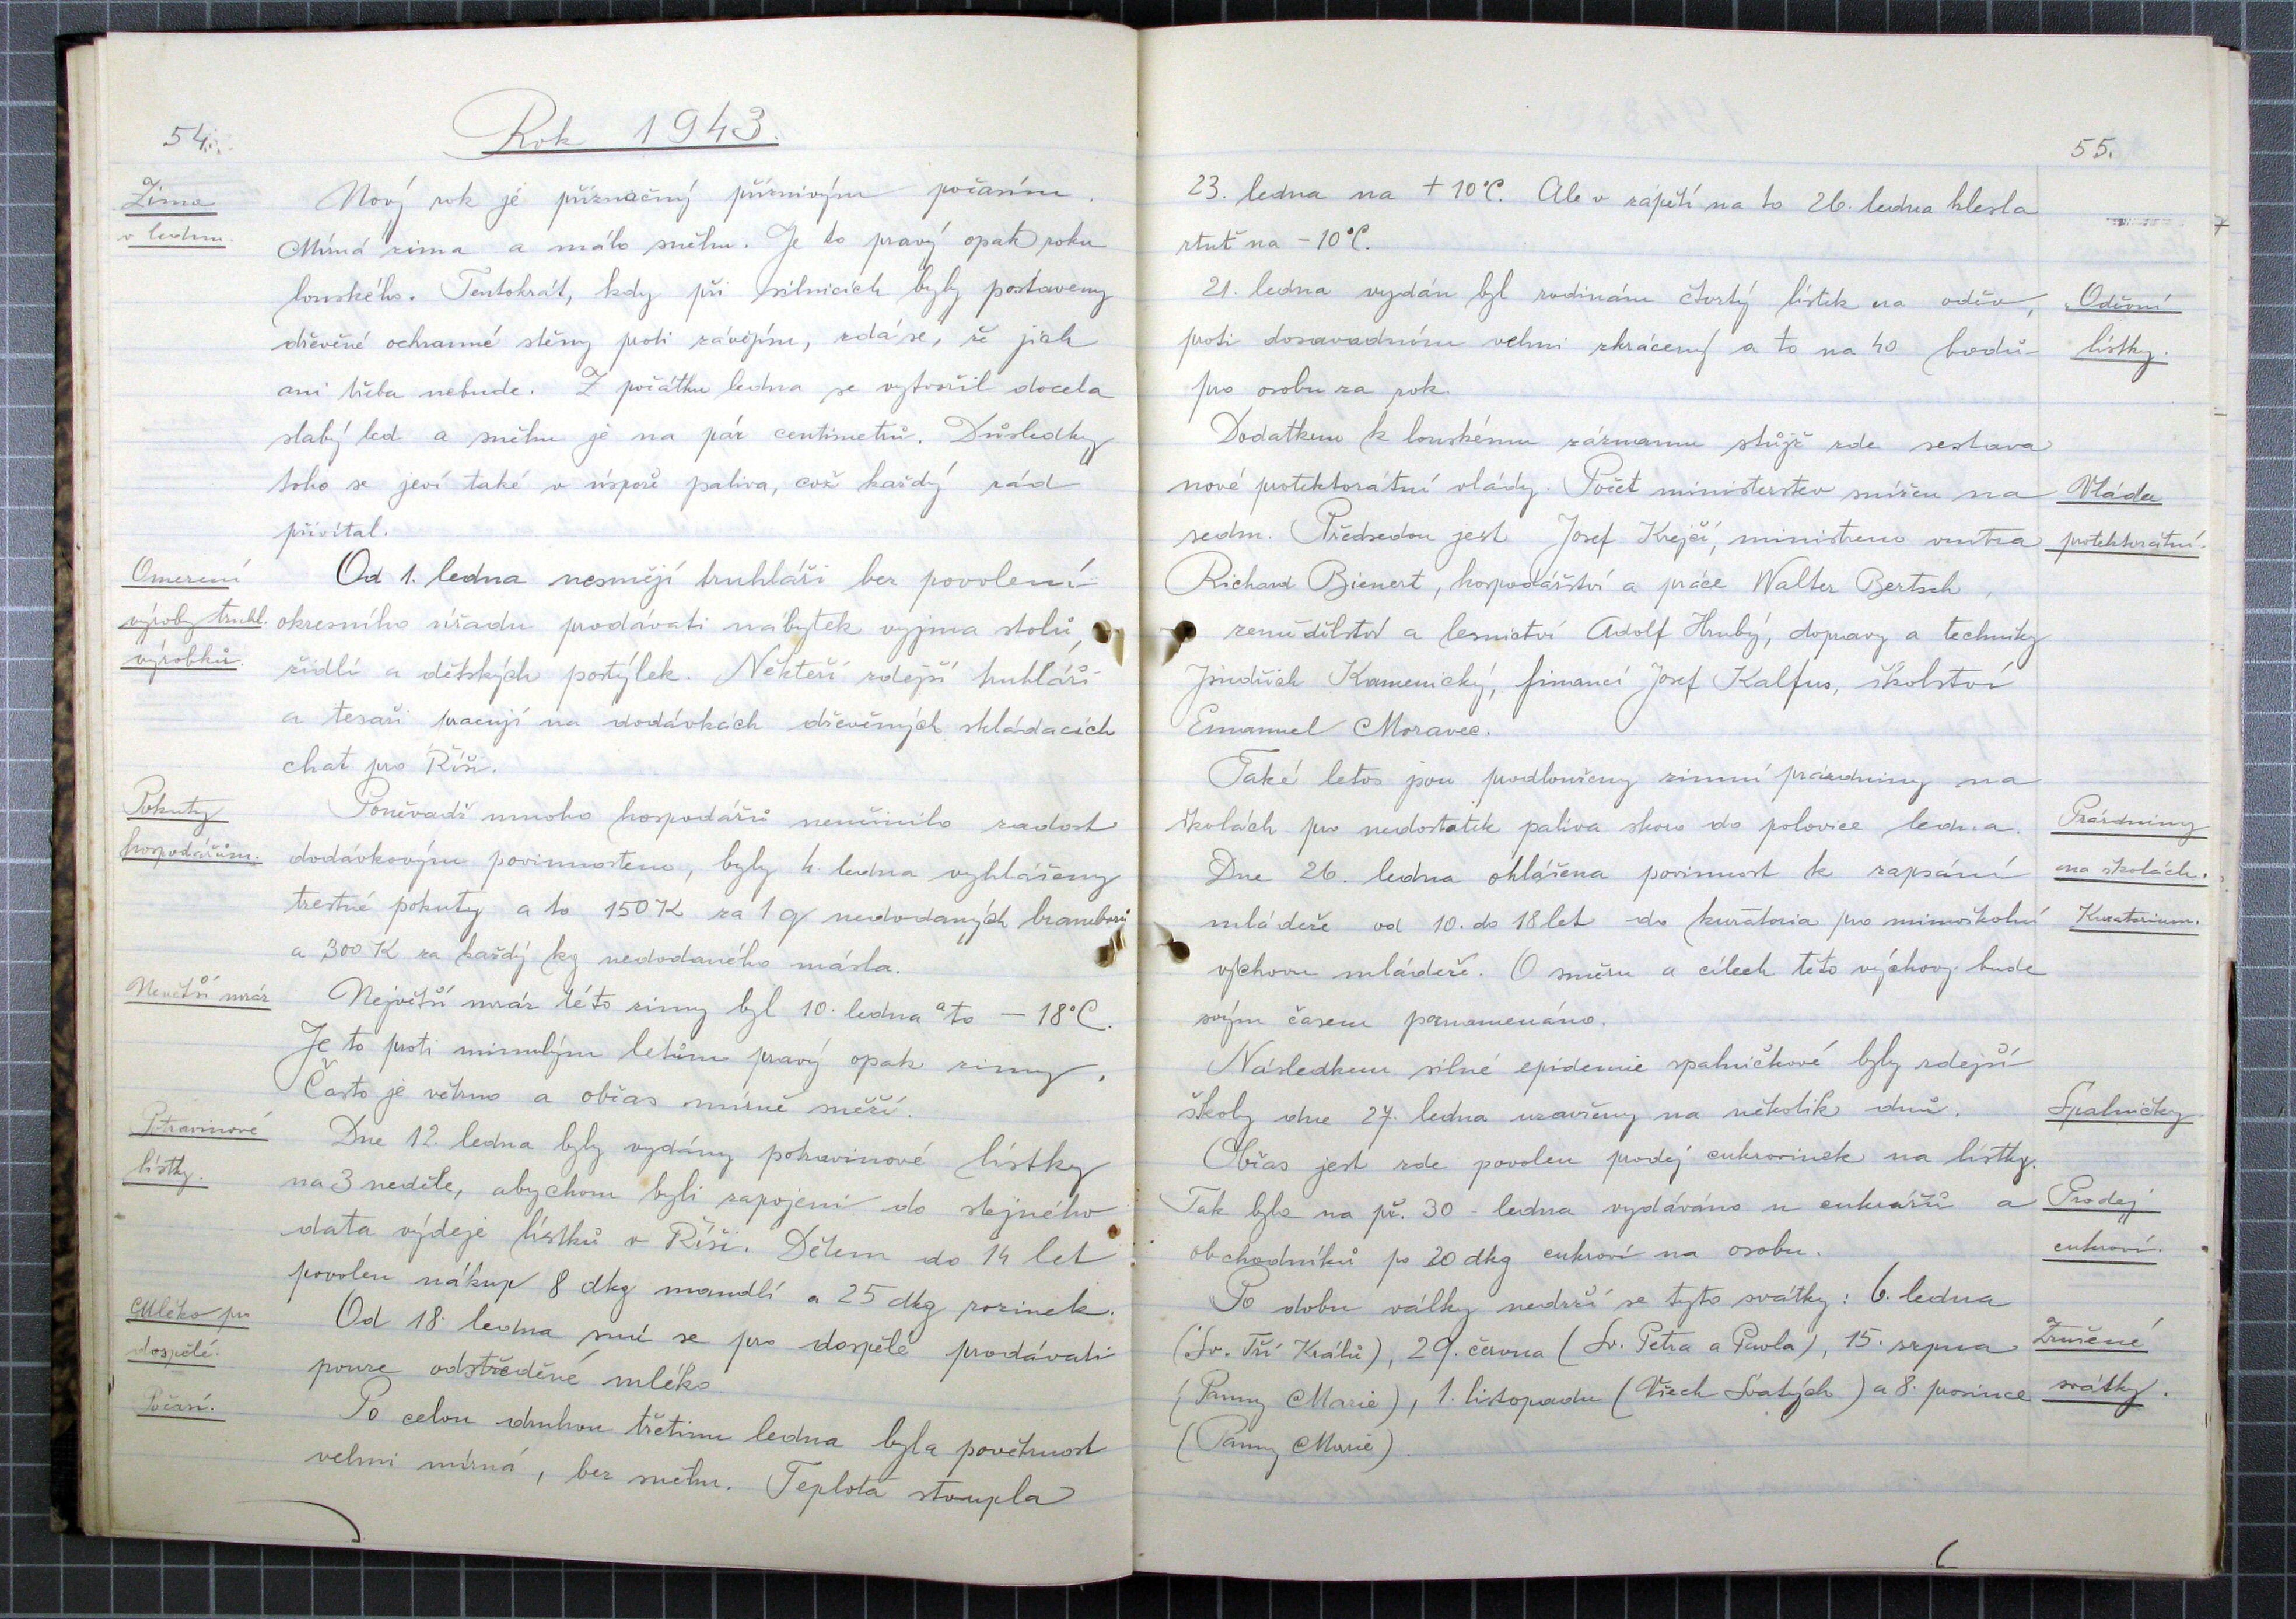 54.
Rok 1943.
Zima
v lednu.
Nový rok je příznačný příznivým počasím.
Mírná zima a málo sněhu. Je to pravý opak roku
louského. Tentokrát, kdy při silnicích byly postaveny
dřevěné ochranné stěny proti závějím, zdá se, že jich
ani třeba nebude. Z počátku ledna se vytvořil docela
slabý led a sněhu je na pár centimetrů. Důsledky
toho se jeví také v úspoře paliva, což každý rád
přivítal.
Omezení
výroby truhl.
výrobků.
Od 1. ledna nesmějí truhláři bez povolení
okresního úřadu prodávati nábytek vyjma stolů,
židlí a dětských postýlek. Někteří zdejší truhláři
a tesaři pracují na dodávkách dřevěných skládacích
chat pro Říši.
Pokuty
hospodářům.
Poněvadž mnoho hospodářů neučinilo zadost
dodávkovým povinnostem, byly 4. ledna vyhlášeny
trestné pokuty a to 150 K za 1 q nedodaných brambor
a 300 K za každý kg nedodaného másla.
Nevětší mráz
Největší mráz této zimy byl 10. ledna a to – 18°C.
Je to proti minulým letům pravý opak zimy.
Často je větrno a občas mírně sněží.
Potravinové
lístky.
Dne 12. ledna byly vydány potravinové lístky
na 3 neděle, abychom byli zapojeni do stejného
data výdeje lístků v Říši. Dětem do 14 let
povolen nákup 8 dkg mandlí a 25 dkg rozinek.
Mléko pro
dospělé.
Od 18. ledna smí se pro dospělé prodávati
pouze odstředěné mléko.
Počasí.
Po celou druhou třetinu ledna byla povětrnost
velmi mírná, bez sněhu. Teplota stoupla
55.
23. ledna na + 10°C. Ale v zápětí na to 26. ledna klesla
rtuť na – 10°C.
21. ledna vydán byl rodinám čtvrtý lístek na oděv,
proti dosavadním velmi zkrácený a to na 40 bodů
pro osobu za rok.
Oděvní
lístky.
Dodatkem k louskému záznamu stůjž zde sestava
nové protektorátní vlády. Počet ministerstev snížen na
sedm. Předsedou jest Josef Krejčí, ministrem vnitra
Richard Bienert, hospodářství a práce Walter Bertsch,
zemědělství a lesnictví Adolf Hrubý, dopravy a techniky
Jindřich Kamenický, financí Josef Kalfus, školství
Emanuel Moravec.
Vláda
protektorátní.
Také letos jsou prodlouženy zimní prázdniny na
školách pro nedostatek paliva skoro do polovice ledna.
Prázdniny
na školách.
Dne 26. ledna ohlášena povinnost k zapsání
mládeže od 10. do 18 let do kuratoria pro mimoškolní
výchovu mládeže. O směru a cílech této výchovy bude
svým časem poznamenáno.
Kuratorium.
Následkem silné epidemie spalničkové byly zdejší
školy dne 27. ledna uzavřeny na několik dnů.
Spalničky
Občas jest zde povolen prodej cukrovinek na lístky.
Tak bylo na př. 30. ledna vydáváno u cukrářů a
obchodníků po 20 dkg cukroví na osobu.
Prodej
cukroví.
Po dobu války nedrží se tyto svátky: 6. ledna
(Sv. Tří Králů), 29. června (Sv. Petra a Pavla), 15. srpna
(Panny Marie), 1. listopadu (Všech Svatých) a 8. prosince
(Panny Marie).
Zrušené
svátky.